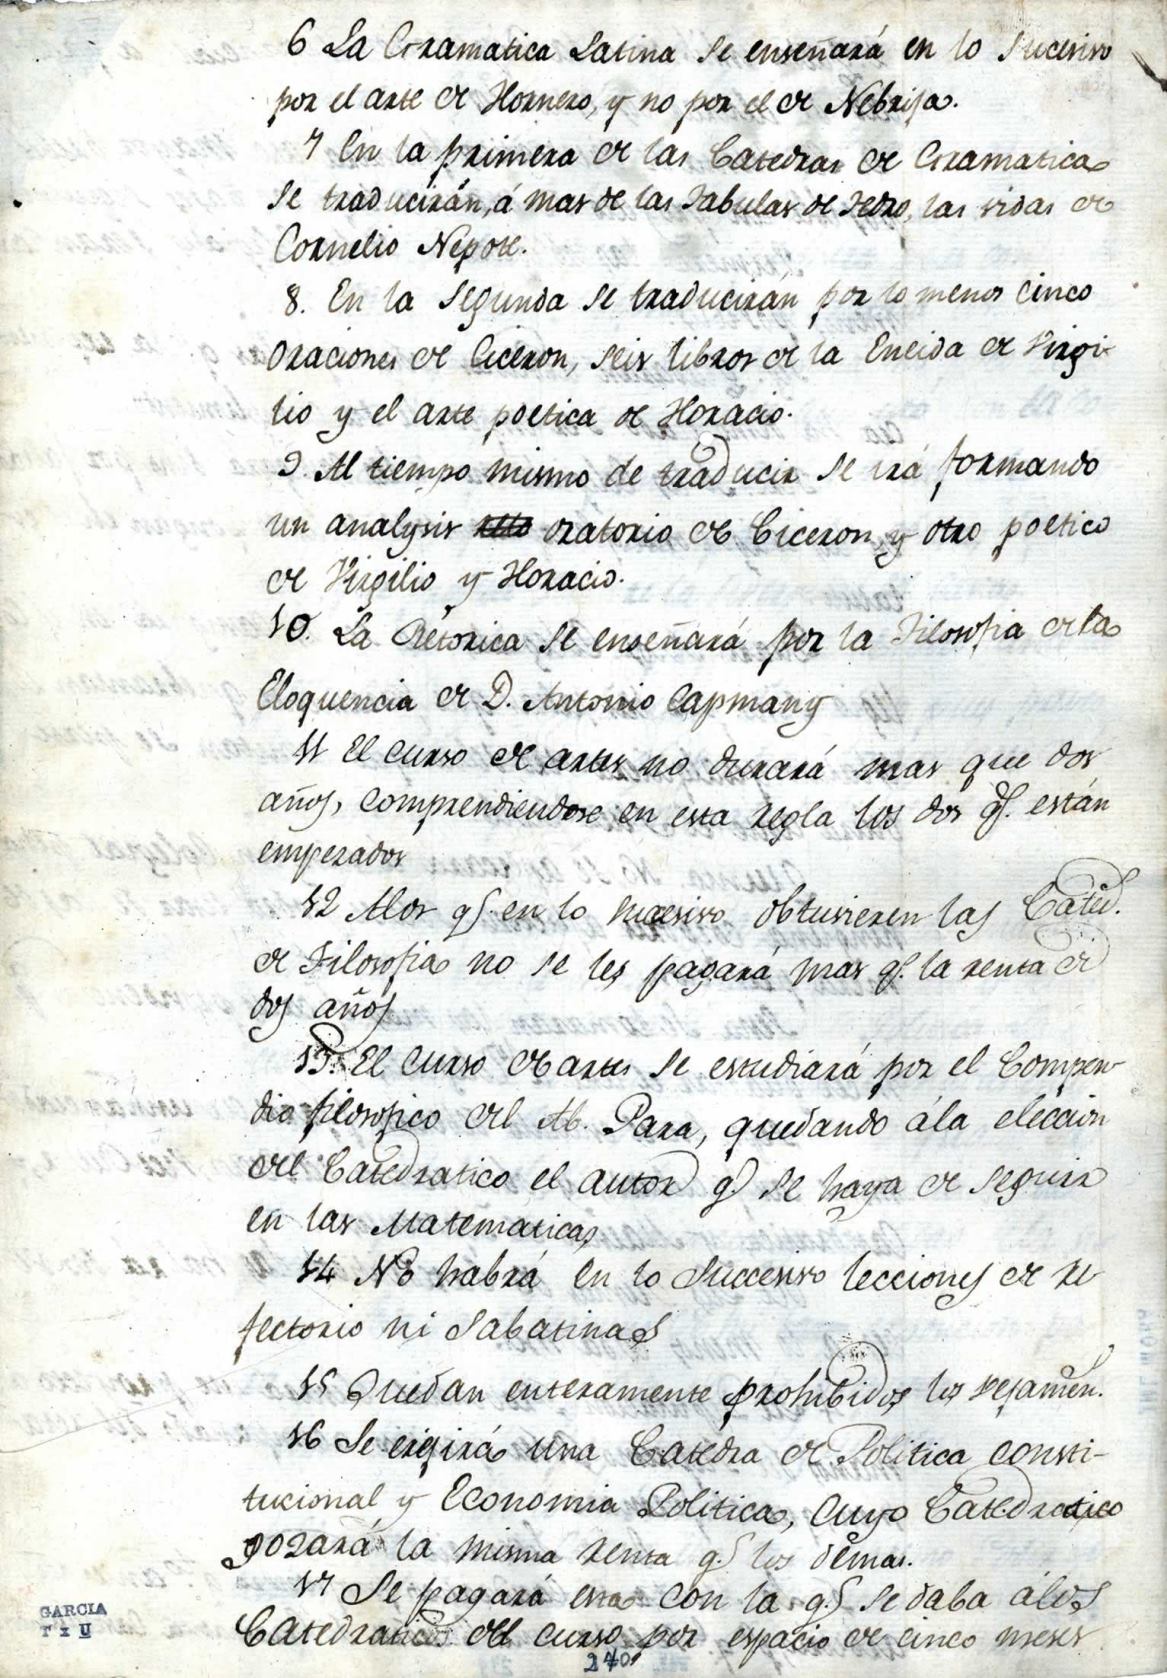 6 La Gramatica Latina se enseñará en lo sucesivo
por el arte de Hornero, y no por el de Nebrija.
7 En la primera de las Catedras de Gramatica
se traducirán, á mas de las Fabulas de Fedro, las vidas de
Cornelio Nepote.
8. En la Segunda se traducirán por lo menos cinco
Oraciones de Ciceron, seis libros de la Eneida de Virgi-
lio y el arte poetica de Horacio.
9. Al tiempo mismo de traducir se irá formando
un analysis oratorio de Ciceron y otro poetico
de Virgilio y Horacio.
10. La Retorica se enseñará por la Filosofia de la
Eloquencia de D. Antonio Capmany
11 El curso de artes no durará mas que dos
años, comprendiendose en esta regla los dos q.e están
empezados
12 Alos q.e en lo sucesivo obtuvieren las Cated.
de Filosofia no se les pagará mas q.e la renta de
dos años
13. El curso de artes se estudiará por el Compen-
dio filosofico del Ab. Para, quedando ála eleccion
del Catedratico el autor q.e se haya de seguir
en las Matematicas
14 No habrá en lo Successivo lecciones de re-
fectorio ni Sabatinas
15 Quedan enteramente prohibidos los vejamen.
16 Se erigirá una Catedra de Politica consti-
tucional y Economia Politica, cuyo Catedratico
gozará la misma renta q.e los demas.
17 Se pagará esta con la q.e se daba álos
Catedraticos del curso por espacio de cinco meses
GARCIA
270